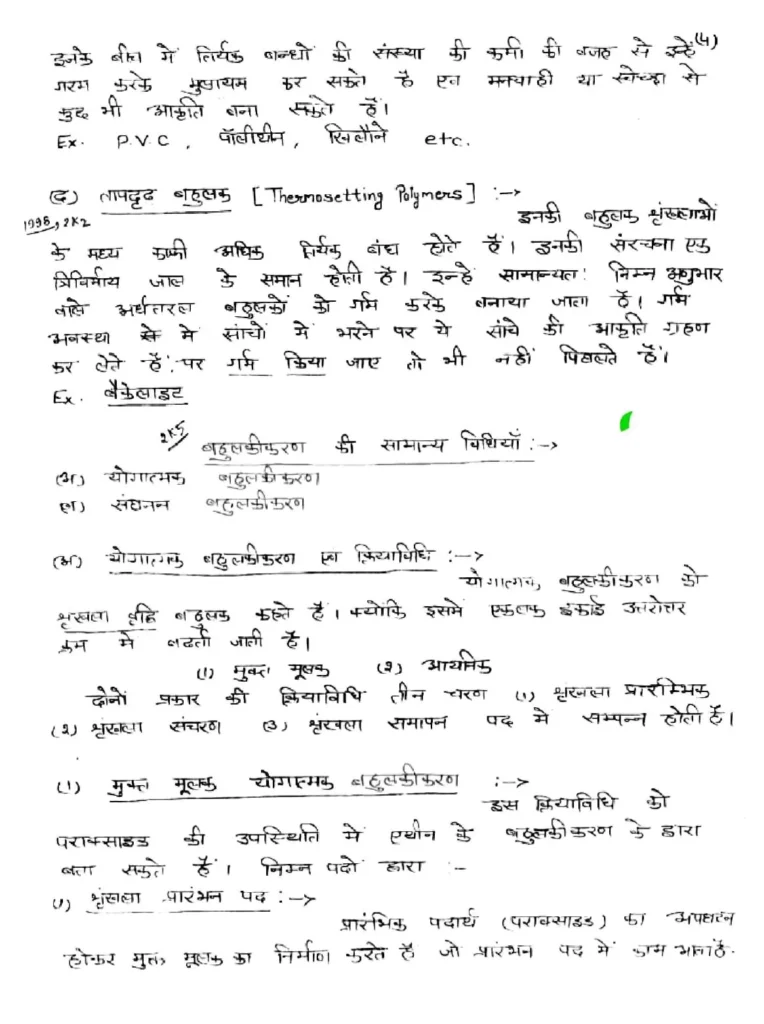 (4)
इनके बीच में तिर्यक बन्धों की संख्या की कमी की वजह से इन्हें
गरम करके मुलायम कर सकते है एवं मनचाही या स्वेच्छा से
कुछ भी आकृति बना सकते हैं।
Ex. P.V.C, पॉलीथीन, खिलौने etc.
(द) तापदृढ़ बहुलक [Thermosetting Polymers] :->
1998, 2K2 इनकी बहुलक श्रृंखलाओं
के मध्य काफी अधिक तिर्यक बंध होते हैं। इनकी संरचना एक
त्रिविमीय जाल के समान होती है। इन्हें सामान्यतः निम्न अणुभार
वाले अर्धतरल बहुलकों को गर्म करके बनाया जाता है। गर्म
अवस्था में सांचों में भरने पर ये सांचे की आकृति ग्रहण
कर लेते हैं, पर गर्म किया जाए तो भी नहीं पिघलते हैं।
Ex. बैकेलाइट
2K5 बहुलकीकरण की सामान्य विधियाँ :->
(अ) योगात्मक बहुलकीकरण
(ब) संघनन बहुलकीकरण
(अ) योगात्मक बहुलकीकरण एवं क्रियाविधि :->
योगात्मक बहुलकीकरण को
श्रृखला वृद्धि बहुलक कहते हैं। क्योंकि इसमें एकलक इकाई उत्तरोत्तर
क्रम में बढती जाती है।
(1) मुक्त मूलक (2) आयनिक
दोनों प्रकार की क्रियाविधि तीन चरण (1) श्रृंखला प्रारम्भिक
(2) श्रृंखला संचरण (3) श्रृंखला समापन पद में सम्पन्न होती है।
(1) मुक्त मूलक योगात्मक बहुलकीकरण :->
इस क्रियाविधि को
पराक्साइड की उपस्थिति में एथीन के बहुलकीकरण के द्वारा
बता सकते हैं। निम्न पदों द्वारा :-
1) श्रृंखला प्रारंभन पद :->
प्रारंभिक पदार्थ (पराक्साइड) का अपघटन
होकर मुक्त मूलक का निर्माण करते है जो प्रारंभन पद में काम आता है.